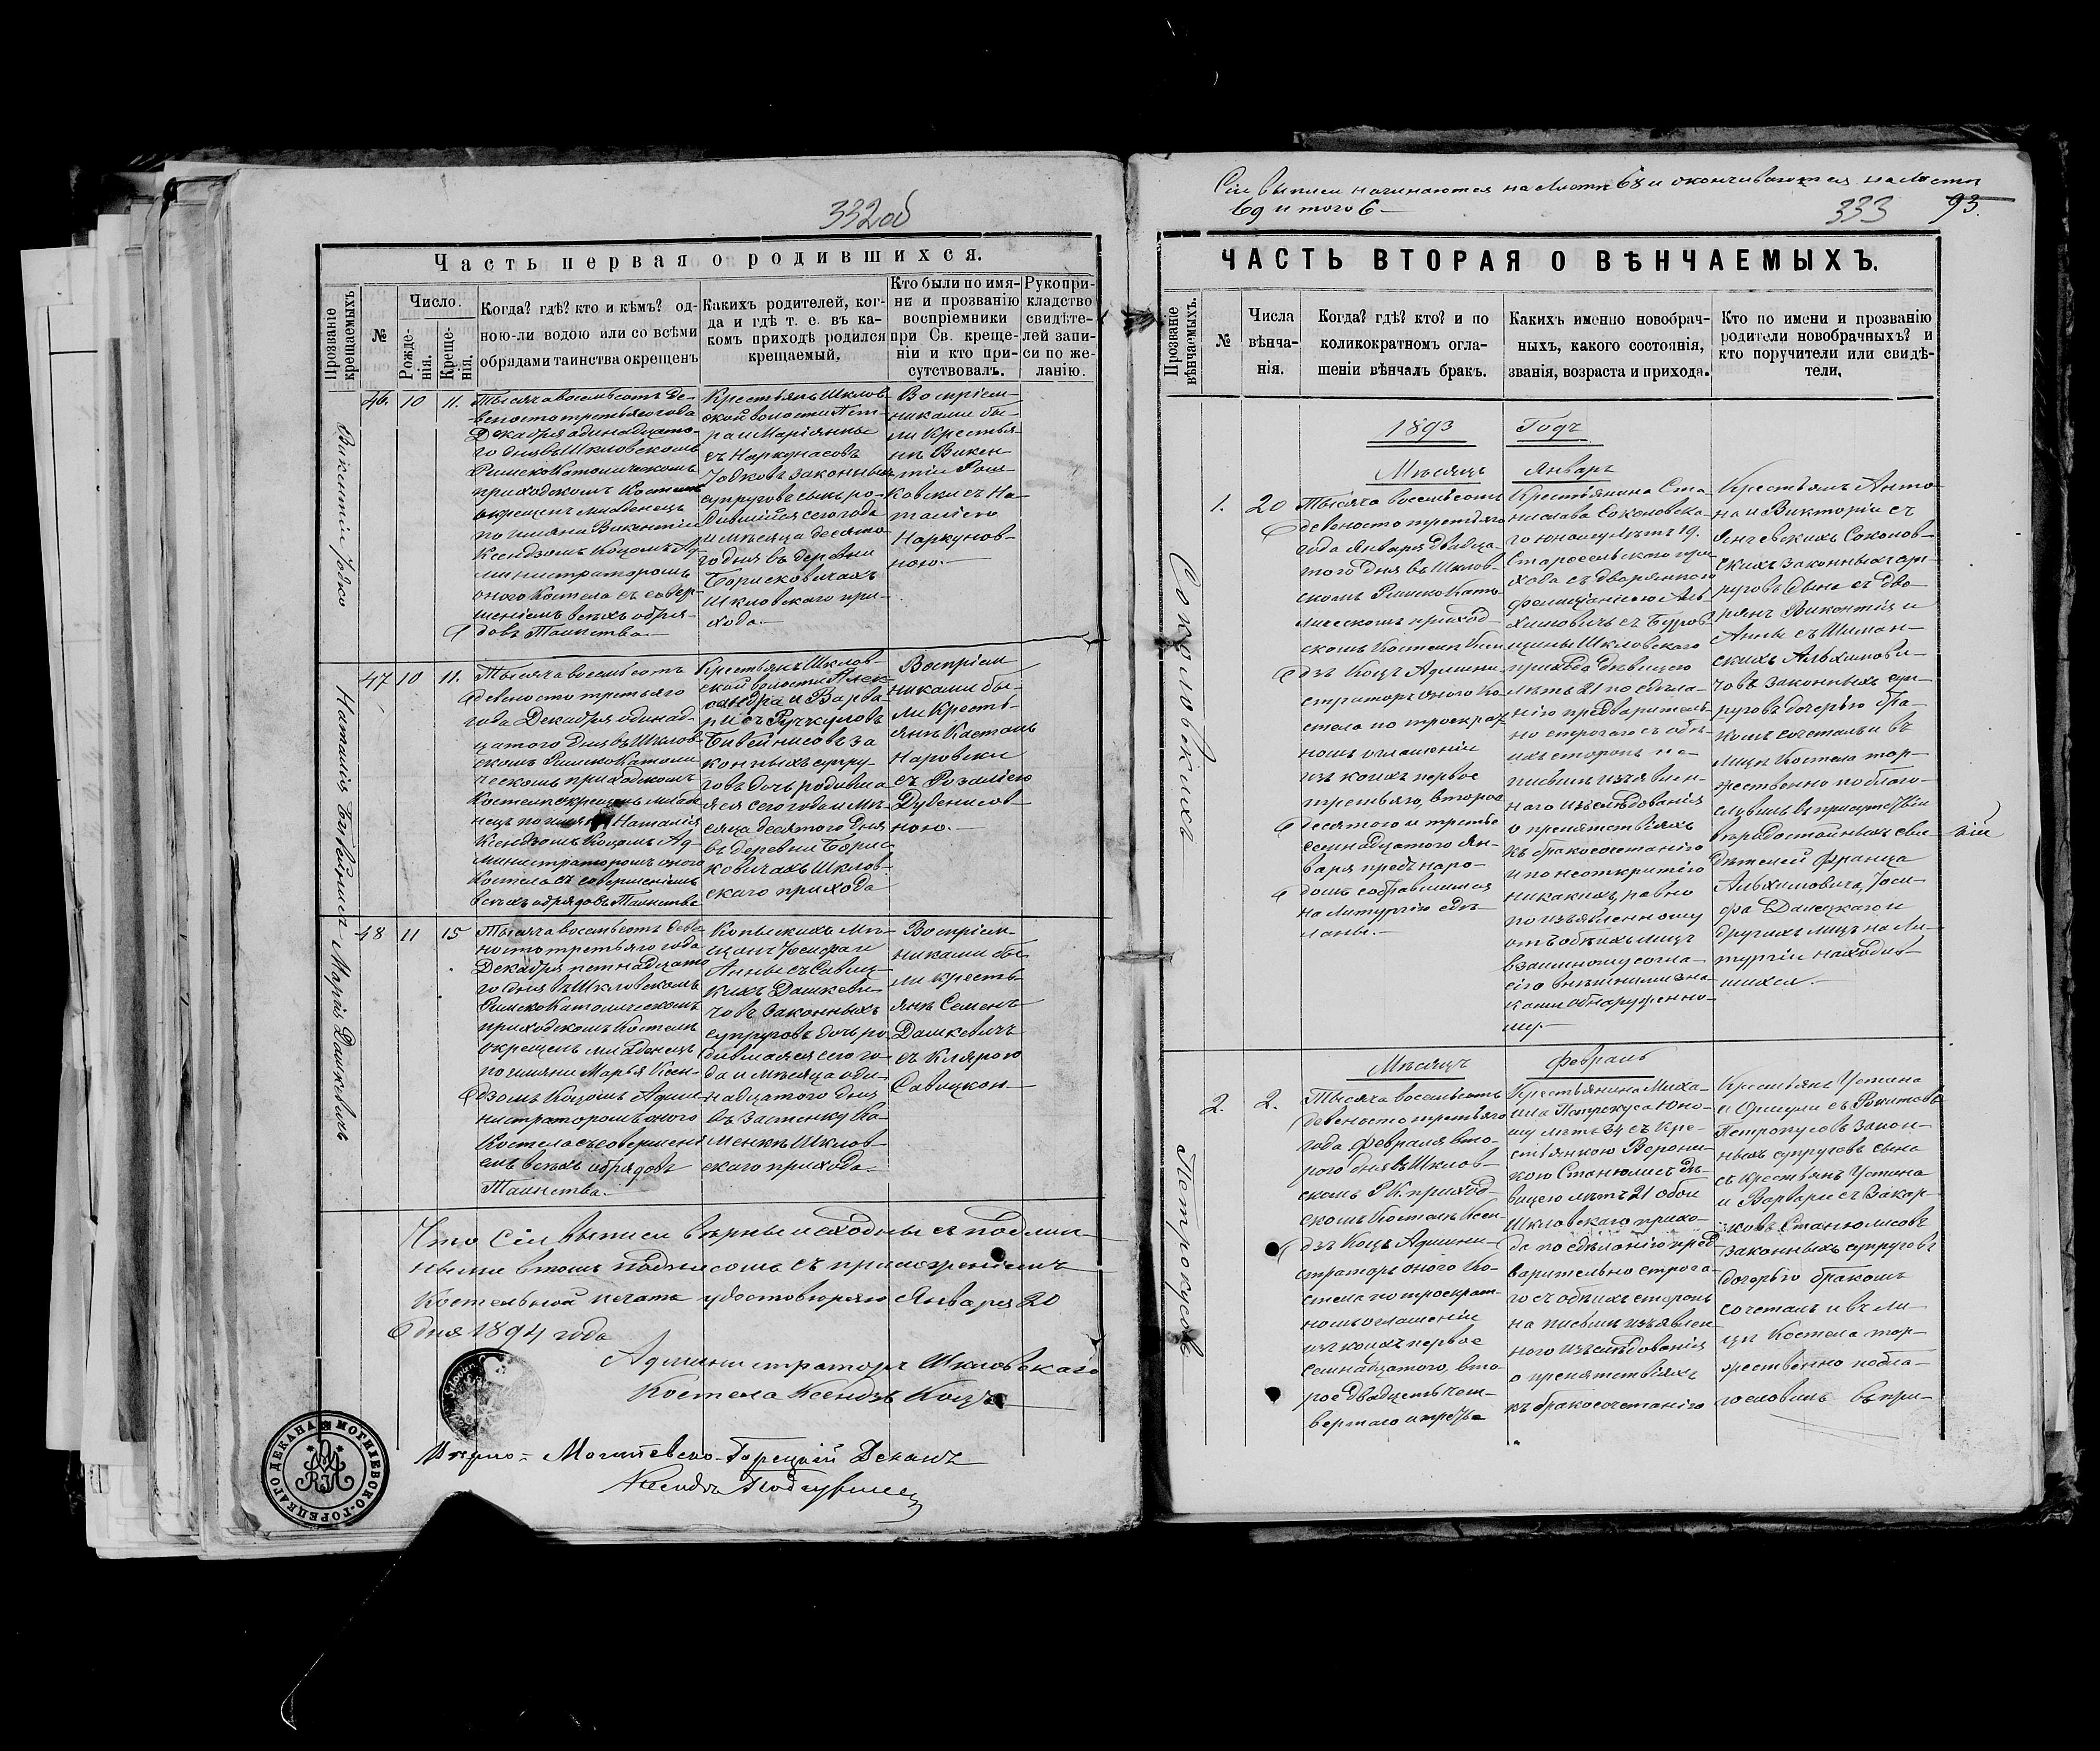 332об
Часть первая о родившихся.
Прозваніе крещаемыхъ
№
Число.
Рожде-
нія.
Креще-
нія.
Когда? гдѣ? кто и кѣмъ? од-
ною-ли водою или со всѣми
обрядами таинства окрещенъ
Какихъ родителей, ког-
да и гдѣ т. е. въ ка-
комъ приходѣ родился
крещаемый.
Кто были по имя-
ни и прозванію
воспріемники
при Св. креще-
ніи и кто при-
сутствовалъ.
Рукопри-
кладство
свидѣте-
лей запи-
си по же-
ланію.
Викентій Іодко
46. 10 11.
Тысяча восемьсотъ де-
вяносто третьяго года
Декабря одинадцато-
го дня въ Шкловскомъ
Римско Католическомъ
приходскомъ Костелѣ
окрещенъ младенецъ
по имяни Викентій
Ксендзомъ Коцомъ Ад-
министраторомъ
оного Костела съ совер-
шеніемъ всѣхъ обря-
довъ Таинства.
Крестьянъ Шклов-
ской волости Пет-
ра и Маріянны
съ Наркунасовъ
Іодковъ законныхъ
супруговъ сынъ ро-
дившійся сего года
и мѣсяца десято-
го дня въ деревни
Борисковичахъ
Шкловскаго при-
хода.
Воспріем-
никами бы-
ли Крестья-
нъ Викен
тій
съ На-
таліею
Наркунов-
ною.
Наталія Бивейнисъ
47 10 11.
Тысяча восемьсотъ
девяносто третьяго
года Декабря одинад-
цатого дня въ Шклов-
скомъ Римско Католи
ческомъ приходскомъ
Костелѣ окрещенъ младе
нецъ по имяни Наталія
Ксендзомъ Коцомъ Ад-
министраторомъ оного
Костела съ совершеніемъ
всѣхъ обрядовъ Таинства
Крестьянъ Шклов-
ской волости Алек
сандра и Варва-
ры съ
Бивейнисовъ за
конныхъ супру-
говъ дочь родивша
яся сего года и мѣ-
сяца десятого дня
въ деревни Борис
ковичахъ Шклов-
скаго прихода
Воспріем
никами бы-
ли Кресть-
янъ Каетанъ
Наровски
съ Розаліею
Дубенисов
ною.
Марія Дашкевичъ
48 11 15
Тысяча восемьсотъ девя
носто третьяго года
Декабря петнадцато
го дня въ Шкловскомъ
Римско Католическомъ
приходскомъ Костелѣ
окрещенъ младенецъ
по имяни Марья Ксен-
дзомъ Коцомъ Адми-
нистраторомъ оного
Костела съ совершені
емъ всѣхъ обрядовъ
Таинства.
Копыскихъ Мѣ-
щанъ Іосифа и
Анны съ Савиц-
кихъ Дашкеви-
човъ законныхъ
супруговъ дочь ро
дившаяся сего го-
да и мѣсяца оди-
надцатого дня
въ застенку Ка-
менкѣ Шклов-
скаго прихода.
Воспріем-
никами бы
ли кресть-
янъ Семенъ
Дашкевичъ
съ Клярою
Савицкою
Что сіи выписи вѣрны и сходны съ подлин-
ными въ томъ подписомъ съ приложеніемъ
Костельной печати удостовѣряю Января 20
дня 1894 года
Администраторъ Шкловскаго
Костела Ксендзъ Коцъ
Вѣрно: Могилевско-Горецкій Деканъ
Ксендзъ
МОГИЛЕВСКО-ГОРЕЦКАГО ДЕКАНА
Сіи выписи начинаются на листѣ 68 и оканчиваются на листѣ
69 и того 6
333 93.
ЧАСТЬ ВТОРАЯ О ВѢНЧАЕМЫХЪ.
Прозваніе вѣнчаемыхъ.
№
Числа
вѣнча-
нія.
Когда? гдѣ? кто? и по
коликократномъ огла-
шеніи вѣнчалъ бракъ.
Какихъ именно новобрач-
ныхъ, какого состоянія,
званія, возраста и прихода.
Кто по имени и прозванію
родители новобрачныхъ? и
кто поручители или свидѣ-
тели.
1893 Годъ
Мѣсяцъ Январь
Соколовскихъ
1. 20
Тысяча восемьсотъ
девяносто третьяго
года Января двадца-
того дня въ Шклов-
скомъ Римско Като-
лическомъ приход-
скомъ Костелѣ Ксен
дзъ Коцъ Админи-
страторъ оного Ко-
стела по троекрат-
номъ оглашеніи
изъ коихъ первое
третьяго, второе
десятого и третье
семнадцатого Ян-
варя предъ наро-
домъ собравшимся
на Литургію сдѣ-
ланы.
Крестьянина Ста-
нислава Соколовска-
го юношу лѣтъ 19.
Старосельского при
хода съ дворянкою
Фелиціаніею Аль
химовичъ съ Буров
щины Шкловского
прихода дѣвицею
лѣтъ 21 по сдѣла-
нію предваритель-
но строгаго съ обѣ-
ихъ сторонъ на
письмѣ изъявлен-
наго изслѣдованія
о препятствіяхъ
къ бракосочетанію
и по неоткрытію
никакихъ, равно
по изъявленному
отъ обѣихъ лицъ
взаимному согла-
сію внѣшними зна
ками обнаруженно-
му.
Крестьянъ Анто-
на и Викторіи съ
Янчевскихъ Соколов-
скихъ законныхъ суп-
руговъ сына съ дво-
рянъ Викентія и
Анны съ Шиман-
скихъ Альхимови-
човъ законныхъ суп-
руговъ дочерью бра-
комъ сочеталъ и въ
лицѣ Костела тор-
жественно поблаго-
словилъ въ присутствіи
вѣрадостойныхъ сви-
дѣтелей Франца
Альхимовича, Іоси-
фа Далецкаго и
другихъ лицъ на Ли-
тургіи находив-
шихся.
Мѣсяцъ Февраль
Петрокусовъ
2. 2.
Тысяча восемьсотъ
девяносто третьяго
года Февраля вто-
рого дня въ Шклов-
скомъ Р.К. приход-
скомъ Костелѣ Ксен-
дзъ Коцъ Админи-
страторъ оного Ко-
стела по троекрат-
номъ оглашеніи
изъ коихъ первое
семнадцатого, вто-
рое двадцать чет-
вертаго и третье
Крестьянина Миха-
ила Петрокуса юно-
шу лѣтъ 24 съ Кре-
стьянкою Верони-
кою Станюлисъ дѣ-
вицею лѣтъ 21 обои
Шкловскаго прихо-
да по сдѣланію пред
варительно строга-
го съ обѣихъ сторонъ
на письмѣ изъявлен
ного изъслѣдованія
о препятствіяхъ
къ бракосочетанію
Крестьянъ Устина
и съ
Петрокусовъ закон-
ныхъ супруговъ сына
съ крестьянъ Устина
и Варвары съ Закар-
Станюлисовъ
законныхъ супруговъ
дочерью бракомъ
сочеталъ и въ ли-
цѣ Костела тор-
жественно побла-
гословилъ въ при-